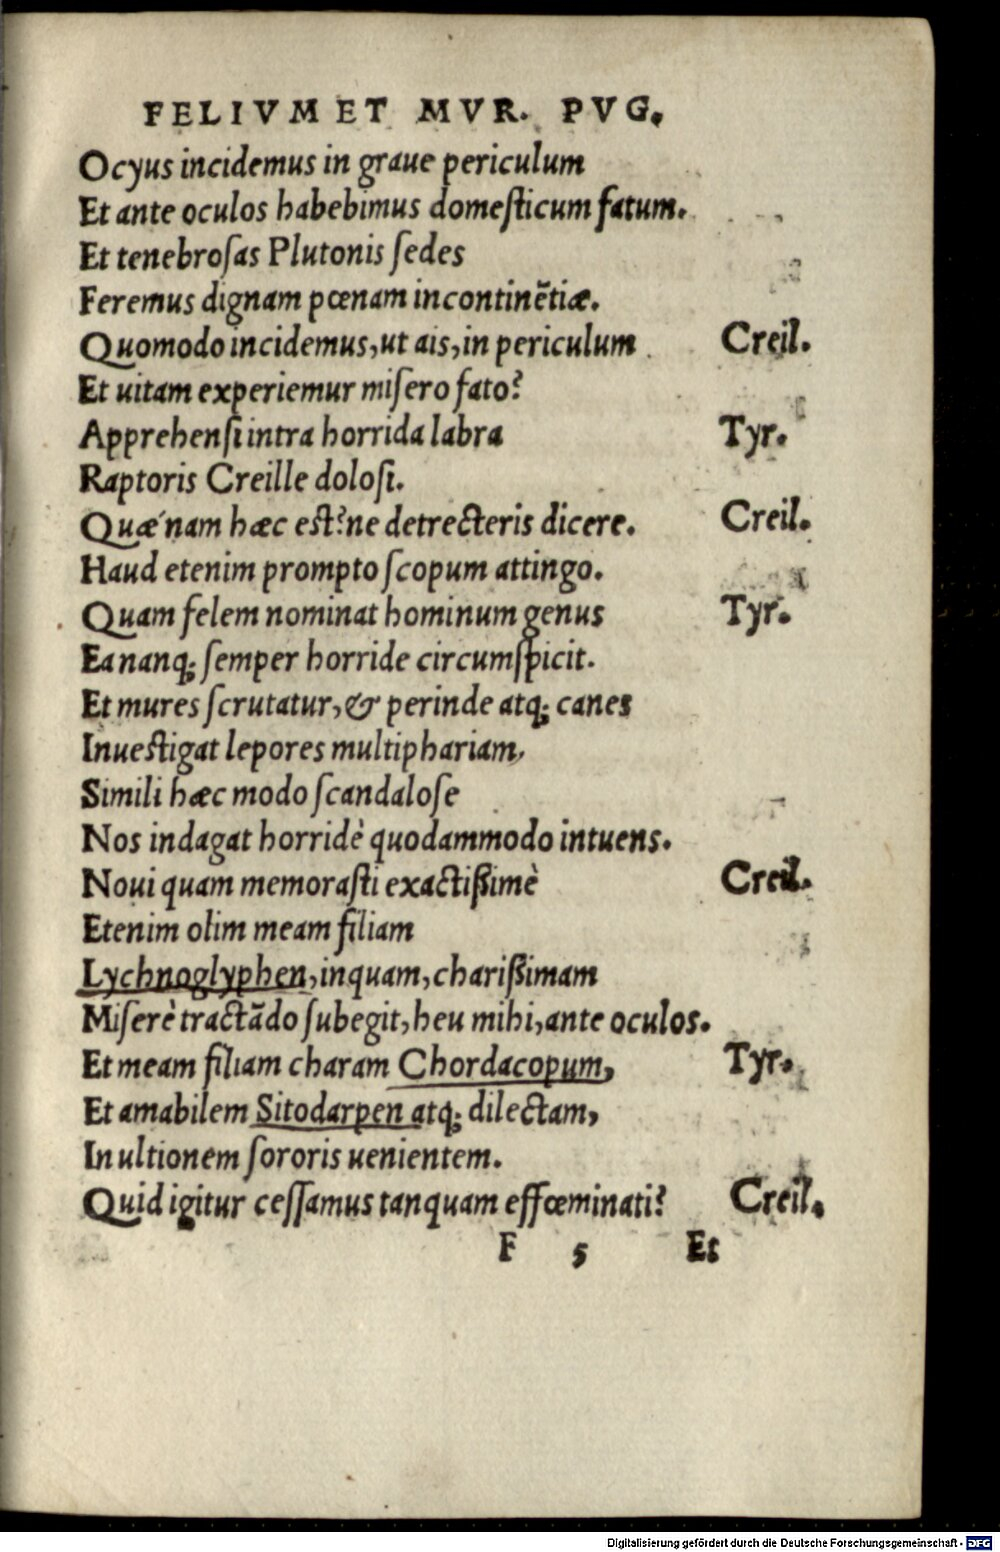 FELIVM ET MVR. PVG.
Ocyus incidemus in graue periculum
Et ante oculos habebimus domeſticum fatum.
Et tenebroſas Plutonis ſedes
Feremus dignam pœnam incontinẽtiæ.
Quomodo incidemus, ut ais, in periculum Creil.
Et uitam experiemur miſero fato?
Apprehenſi intra horrida labra Tyr.
Raptoris Creille doloſi.
Quæ´nam hæc est? ne detrecteris dicere. Creil.
Haud etenim prompto ſcopum attingo.
Quam felem nominat hominum genus Tyr.
Ea nanq; ſemper horride circumſpicit.
Et mures ſcrutatur, & perinde atq; canes
Inueſtigat lepores multiphariam,
Simili hæc modo ſcandaloſe
Nos indagat horridè quodammodo intuens.
Noui quam memoraſti exactißimè Creil.
Etenim olim meam filiam
Lychnoglyphen, inquam, charißimam
Miſerè tractãdo ſubegit, heu mihi, ante oculos.
Et meam filiam charam Chordacopum, Tyr.
Et amabilem Sitodarpen atq; dilectam,
In ultionem ſororis uenientem.
Quid igitur ceſſamus tanquam effœminati? Creil.
F 5 Et
Digitalisierung gefördert durch die Deutsche Forschungsgemeinschaft - DFG